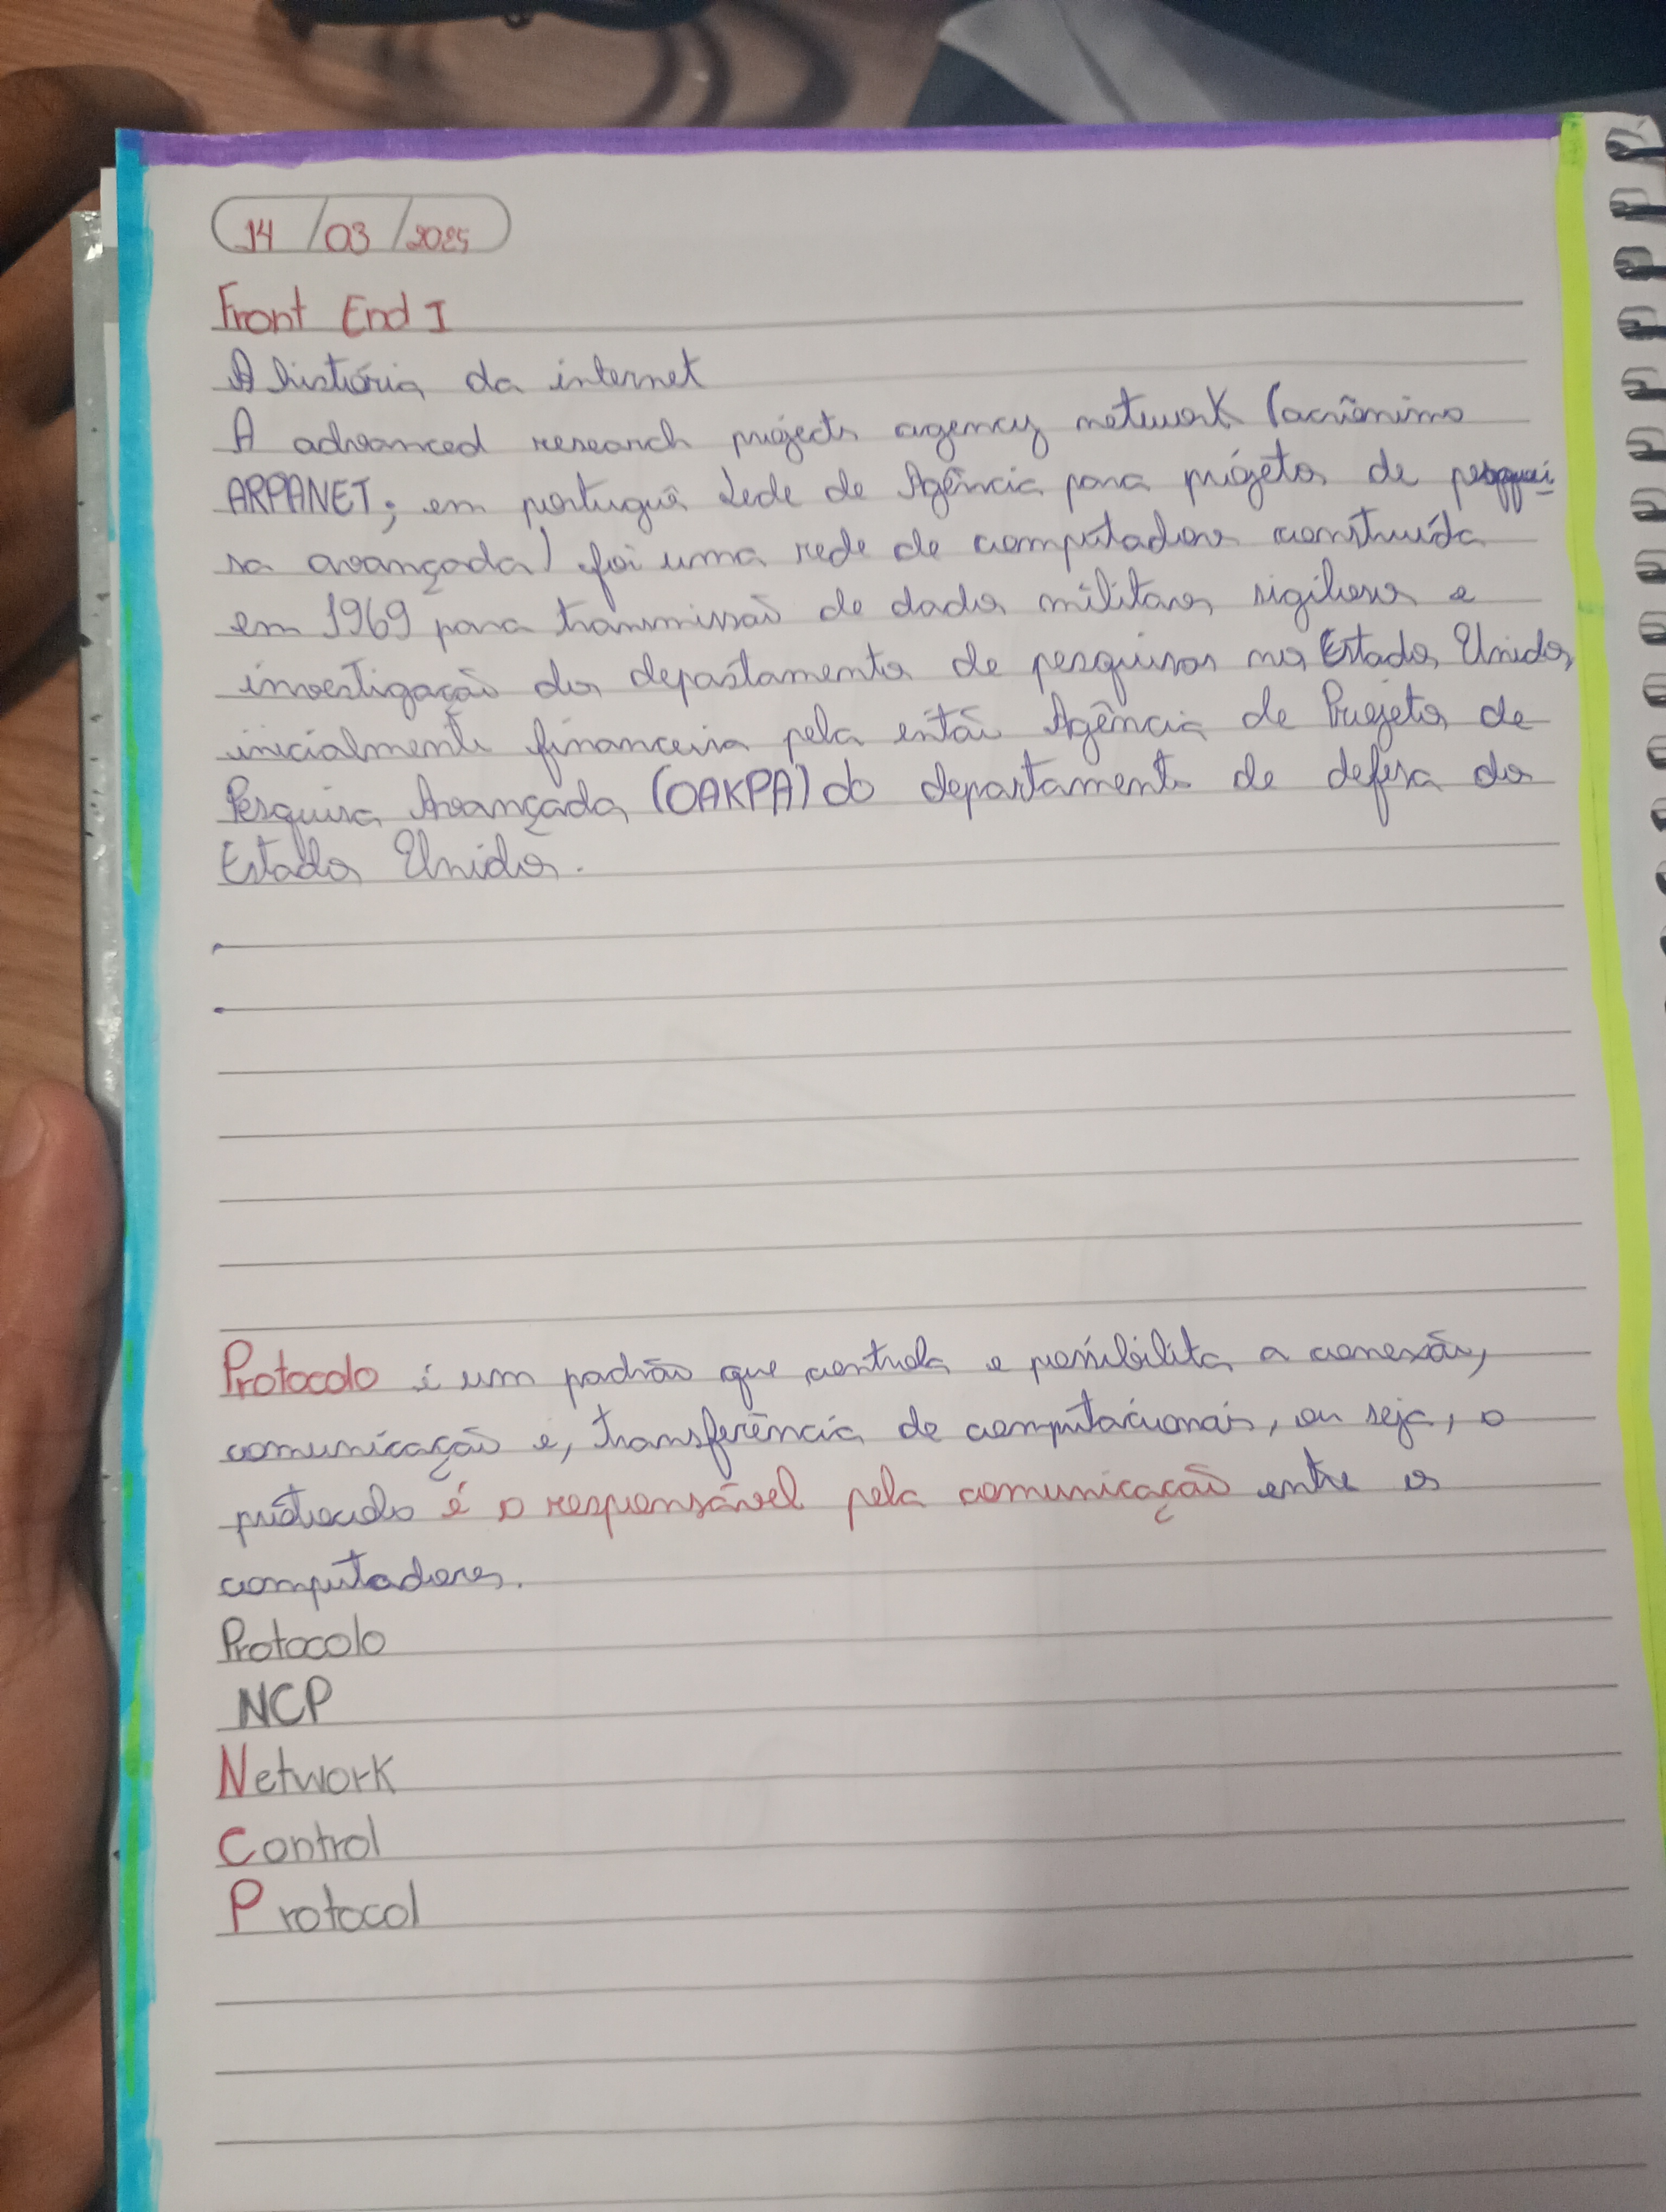 14/03/2025
Front End I
A história da internet
A advanced research projects agency network (acrônimo
ARPANET; em portuguê Rede de Agência para projetos de pesqui
sa avançada) foi uma rede de computadores construída
em 1969 para transmissão de dados militares sigilosos e
investigação dos departamentos de pesquisas nos Estados Unidos,
inicialmente financeira pela então Agência de Projetos de
Pesquisa Avançada (OAKPA) do departamento de defesa dos
Estados Unidos.
Protocolo é um padrão que controla e possibilita a conexão,
comunicação e, transferência de computacionais, ou seja, o
protocolo é o responsável pela comunicação entre os
computadores.
Protocolo
NCP
Network
Control
Protocol